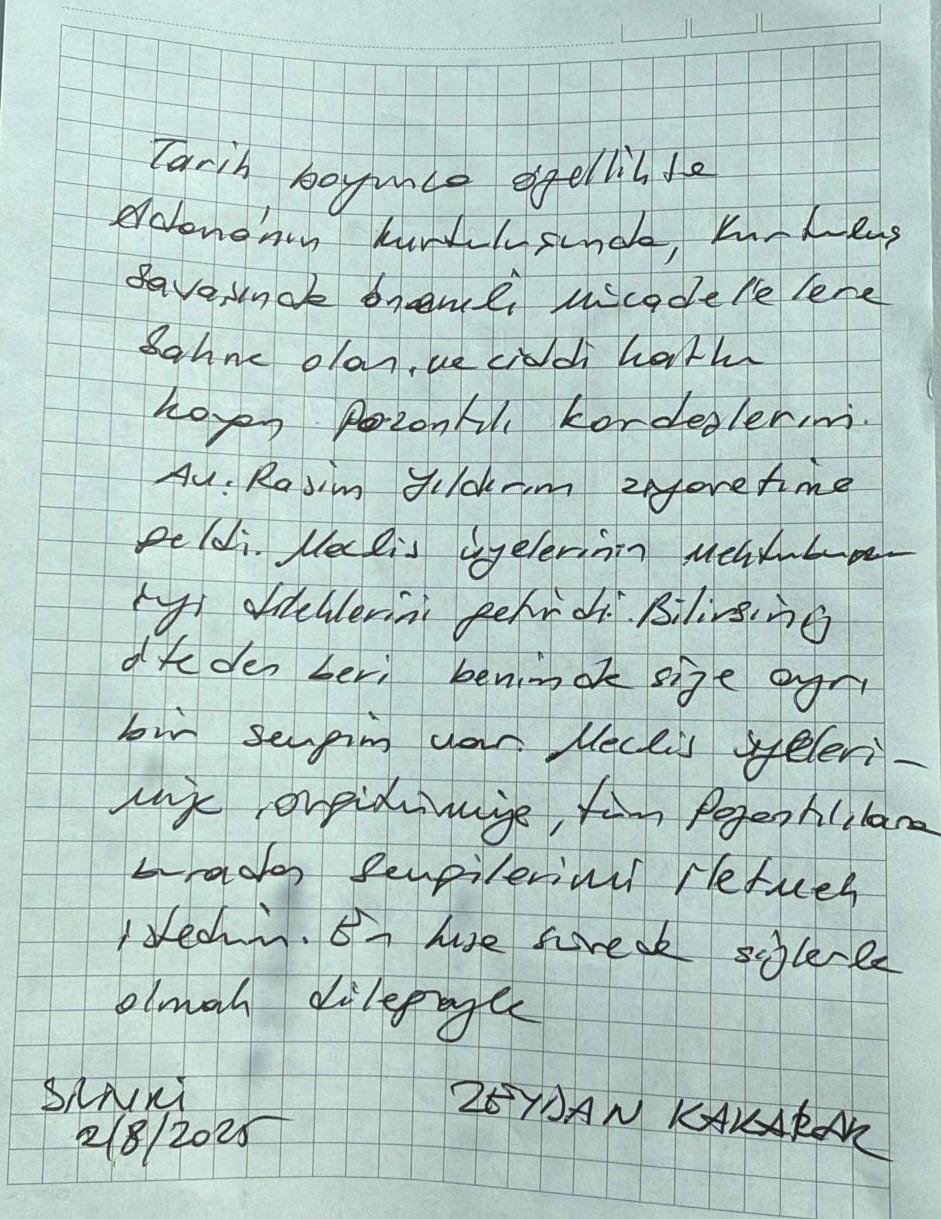 Tarih boyunca özellikle
Adana'nın kurtuluşunda, Kurtuluş
Savaşında önemli mücadelelere
Sahne olan, ve ciddi katkı
koyan Pozantılı kardeşlerim.
Av. Rasim Yıldırım ziyaretime
geldi. Meclis üyelerinin mektubunu
iyi dileklerini getirdi. Bilirsiniz
öteden beri benimde size ayrı
bir sevgim var. Meclis üyeleri-
mize, örgütümüze, tüm Pozantılılara
buradan sevgilerimi iletmek
istedim. En kısa sürede sizlerle
olmak dileğiyle
SİLİVRİ
2/8/2025
ZEYDAN KARALAR